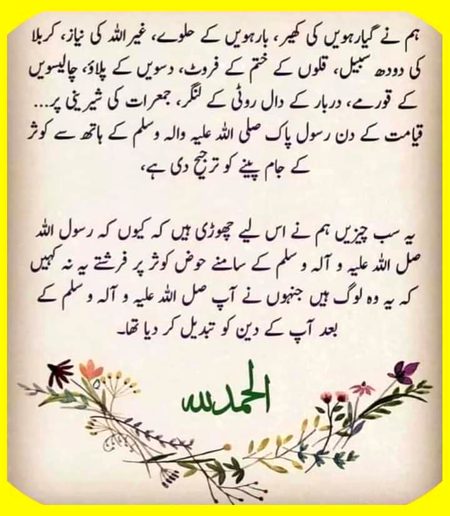 ہم نے گیارہویں کی کھیر، بارہویں کے حلوے، غیر اللہ کی نیاز، کربلا
کی دودھ سبیل، قلوں کے ختم کے فروٹ، دسویں کے پلاؤ، چالیسویں
کے قورمے، دربار کے دال روٹی کے لنگر، جمعرات کی شیرینی پر...
قیامت کے دن رسول پاک صلی اللہ علیہ والہ وسلم کے ہاتھ سے کوثر
کے جام پینے کو ترجیح دی ہے،
یہ سب چیزیں ہم نے اس لیے چھوڑی ہیں کہ کیوں کہ رسول اللہ
صل اللہ علیہ و آلہ و سلم کے سامنے حوض کوثر پر فرشتے یہ نہ کہیں
کہ یہ وہ لوگ ہیں جنہوں نے آپ صل اللہ علیہ و آلہ و سلم کے
بعد آپ کے دین کو تبدیل کر دیا تھا۔
الحمدللہ